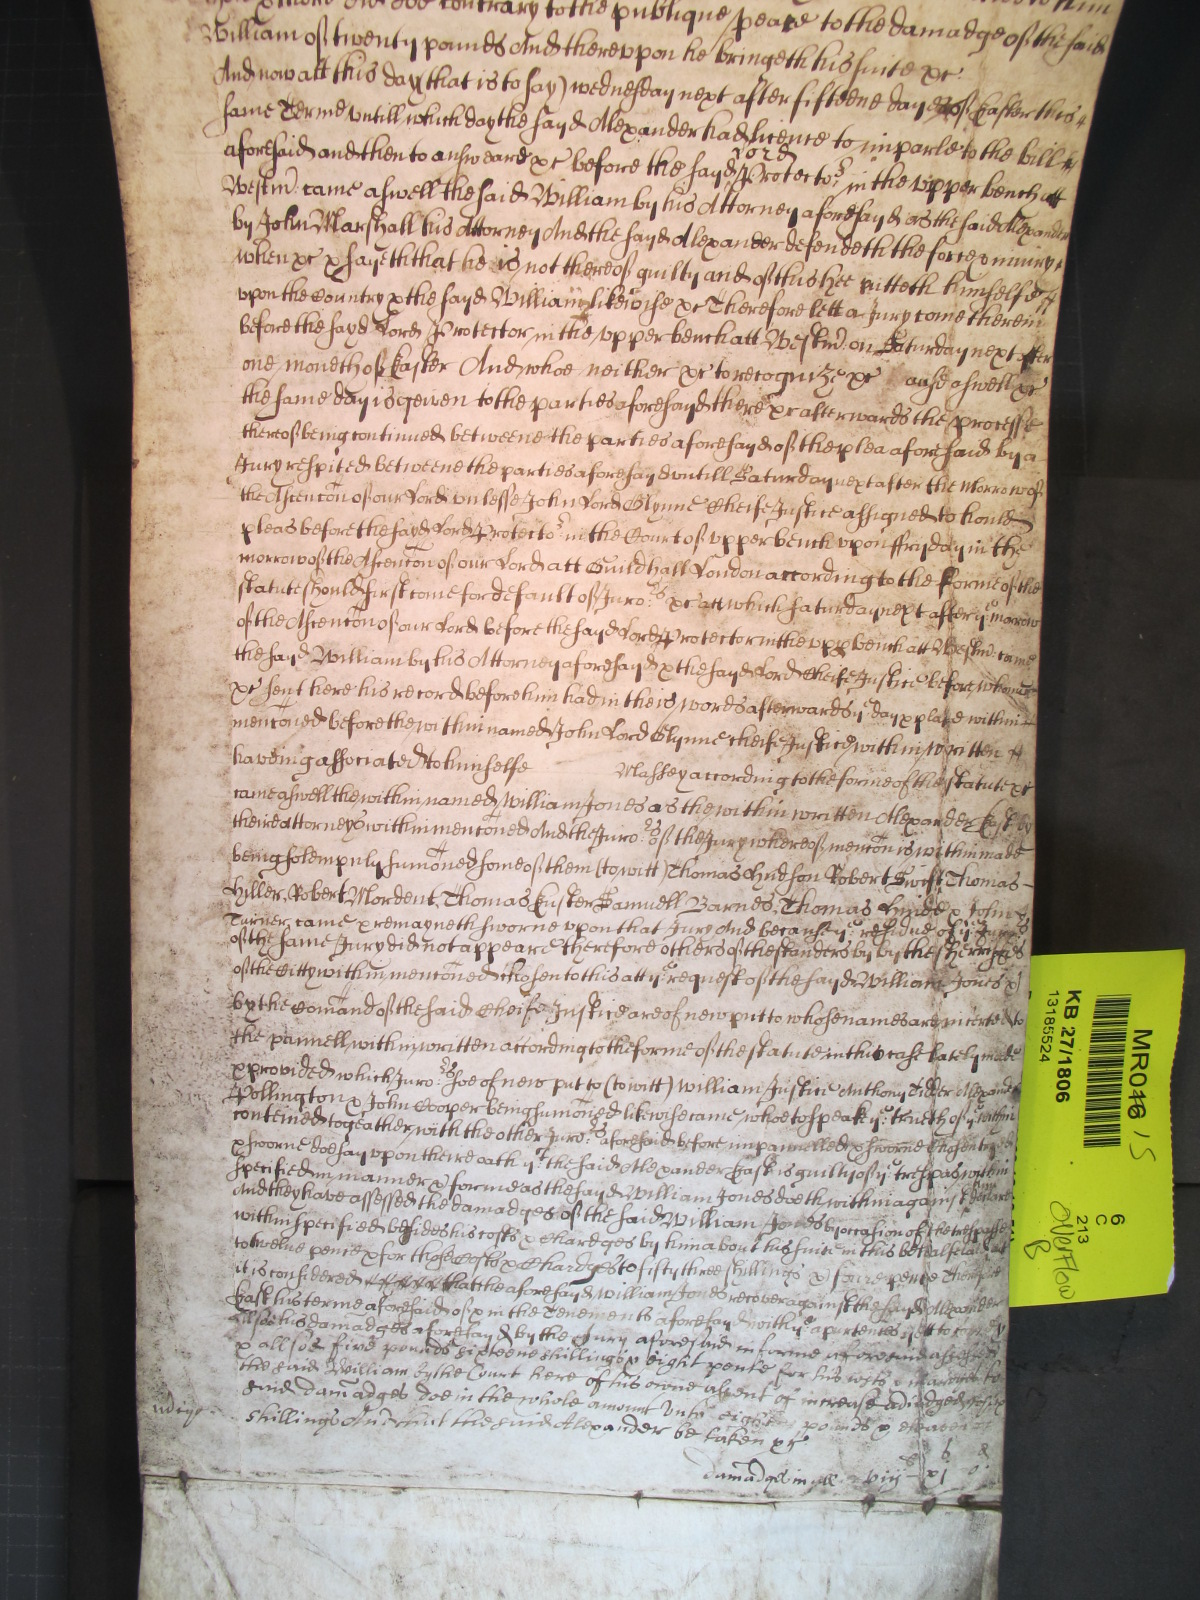 contrary to the publique peace to the damadge of the said
William of twenty pounds And thereupon he bringeth his suite &c
And now att this day (that is to say) wednesday next after fifteene dayes of Easter this
same Terme untill which day the sayd Alexander had licence to imparle to the bill
aforesaid and then to answeare &c before the sayd Lord Protector in the upper bench att
Westmr: came aswell the said William by his Attorney aforesayd as the said Alexander
by John Marshall his Attorney And the sayd Alexander defendeth the force & iniury
when &c & sayeth that he is not thereof guilty and of this hee putteth himselfe
upon the Country & the sayd William likewise &c Therefore lett a Jury come therein
before the sayd Lord Protector in the upper bench att Westmr: on Saturday next after
one moneth of Easter And whoe neither &c to recognize &c aswell &c
the same day is geiven to the parties aforesayd there &c afterwards the processe
thereof being continued betweene the parties aforesayd of the plea aforesaid by a
Jury respited betweene the parties aforesayd untill Saturday next after the Morrow of
the Ascention of our Lord unlesse John Lord Glynne Cheife Justice assigned to hould
pleas before the sayd Lord Protector: in the Court of upper bench upon ffryday in the
morrow of the Ascention of our Lord att Guildhall London according to the forme of the
statute should first come for default of Juro:rs &c att which saturday next after ye morrow
of the Ascention of our Lord before the sayd Lord Protector in the upp bench att Westmr: came
the sayd William by his Attorney aforesayd & the sayd Lord Cheife Justice before whome
&c sent here his record before him had in theis words afterwards ye day & place within
mentoned before the within named John Lord Glynne cheife Justice within written
haveing associated to himselfe Massey according to the forme of the statute &c
came aswell the within named William Jones as the within written Alexander East by
their attorneys within mentoned And the Juro:rs of the Jury whereof mention is within made
being solempnly sumoned some of them (to witt) Thomas Hudson Robert Swift Thomas
Hiller, Robert Mordent, Thomas Samuell Barnes, Thomas & John
Turner, came & remayneth sworne upon that Jury And because ye residue of ye Juro:rs
of the same Jury did not appeare therefore others of the standers by by the Sherriffes
of the Citty within mentoned chosen to this att ye request of the sayd William Jones &
by the Comand of the said Cheife Justice are of new put to whose names are incerted to
the pannell within written according to the forme of the statute in this case lately made
& provided which Juro:rs soe of new put to (to witt) William Justice Anthony Alexander
Pollington & John Cooper being sumoned likewise came whoe to speake ye: trueth of ye within
conteined togeather with the other Juro:rs aforesaid before impannelled & sworne Chosen tryed
& sworne doe say upon their oath yt the said Alexander East is guilty of ye trespas within
specified in manner & forme as the sayd William Jones doeth within against
And they have assessed the damadges of the said William Jones by occasion of the trespasse
within specified besides his costs & Chardges by him about his suite in this behalfe
to twelve pence & for those Costs & Chardges to fifty three shillings & foure pence Therefore
it is considered that the aforesayd William Jones recover against the sayd Alexander
East his terme aforesaid of & in the Tenements aforesayd with ye apurtences yett to come
his damadges aforesayd by the Jury aforesaid in forme aforesaid assessed
& allsoe five pounds sixteene shillings & eight pence for his costs
the said William by the Court here of his owne assent of increase adiudged
said damadges doe in the whole amount unto eight pounds & eleaven
shillings And that the said Alexander be taken &c
damadges in all viij xj
MR046
KB 27/1806
13185524
6
C
213
overflow
8
15